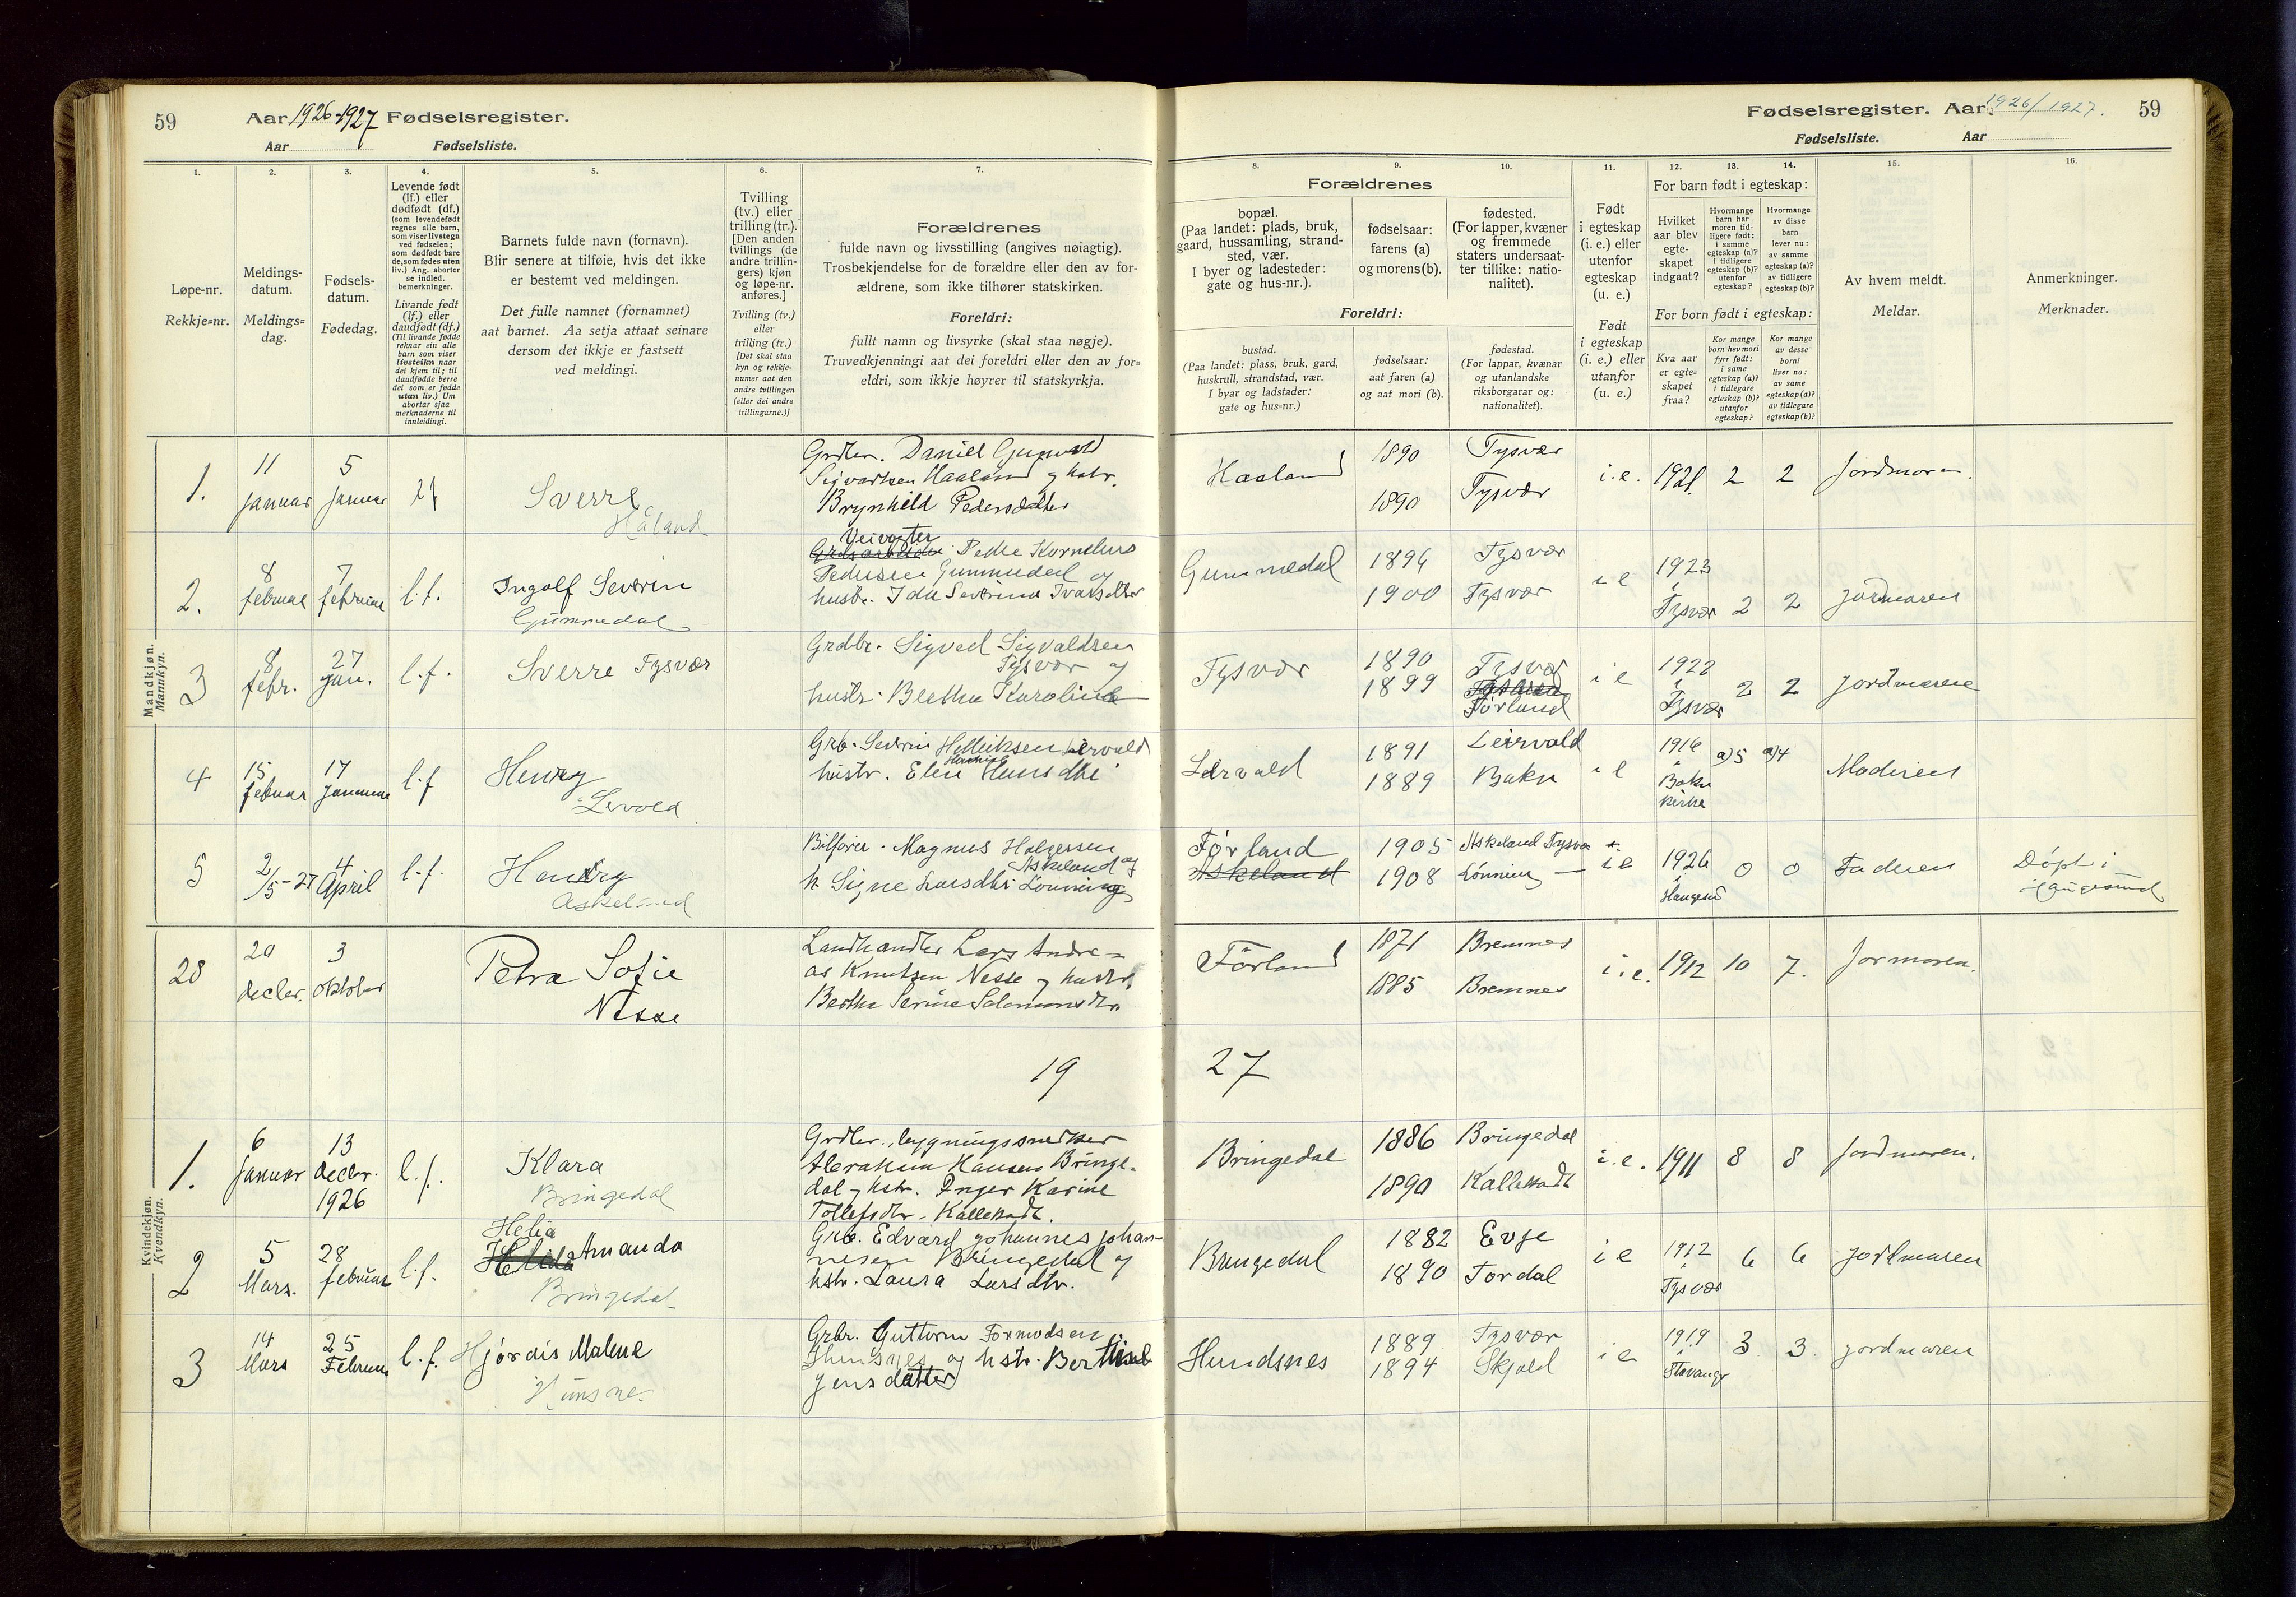 59 Aar 1926-1927 Fødselsregister.
Aar Fødselsliste.
1. 2. 3. 4. 5. 6. 7.
Løpe-nr.
Rekkje=nr.
Meldings-
datum.
Meldings=
dag.
Fødsels-
datum.
Fødedag.
Levende født
(lf.) eller
dødfødt (df.)
(som levendefødt
regnes alle barn,
som viser livstegn
ved fødselen;
som dødfødt bare
de, som fødes uten
liv.) Ang. aborter
se indled.
bemerkninger.
Livande født
(lf.) eller
daudfødt (df.)
(Til livande fødde
reknar ein alle
barn som viser
livsteikn naar
dei kjem til; til
daudfødde berre
dei som er fødde
utan liv.) Um
abortar sjaa
merknaderne til
innleidingi.
Barnets fulde navn (fornavn).
Blir senere at tilføie, hvis det ikke
er bestemt ved meldingen.
Det fulle namnet (fornamnet)
aat barnet. Aa setja attaat seinare
dersom det ikkje er fastsett
ved meldingi.
Tvilling
(tv.) eller
trilling (tr.).
[Den anden
tvillings (de
andre trillin-
gers) kjøn
og løpe-nr.
anføres.]
Tvilling (tv.)
eller
trilling (tr.)
[Det skal staa
kyn og rekkje-
numer aat den
andre tvillingen
(eller dei andre
trillingarne.)]
Forældrenes
fulde navn og livsstilling (angives nøiagtig).
Trosbekjendelse for de forældre eller den av for-
ældrene, som ikke tilhører statskirken.
Foreldri:
fullt namn og livsyrke (skal staa nøgje).
Truvedkjenningi aat dei foreldri eller den av for=
eldri, som ikkje høyrer til statskyrkja.
Fødselsregister. Aar 1926/1927. 59
Fødselsliste. Aar
8. 9. 10. 11. 12. 13. 14. 15. 16.
Forældrenes
bopæl.
(Paa landet: plads, bruk,
gaard, hussamling, strand-
sted, vær.
I byer og ladesteder:
gate og hus-nr.).
fødselsaar:
farens (a)
og morens (b).
fødested.
(For lapper, kvæner
og fremmede
staters undersaat-
ter tillike: natio-
nalitet).
Foreldri:
bustad.
(Paa landet: plass, bruk, gard,
huskrull, strandstad, vær.
I byar og ladstader:
gate og hus=nr.)
fødselsaar:
aat faren (a)
og aat mori (b).
fødestad.
(For lappar, kvænar
og utanlandske
riksborgarar og:
nationalitet).
Født
i egteskap
(i. e.) eller
utenfor
egteskap
(u. e.)
Født
i egteskap
(i. e.) eller
utanfor
(u. e.)
For barn født i egteskap:
Hvilket
aar blev
egte-
skapet
indgaat?
Hvormange
barn har
moren tid-
ligere født:
i samme
egteskap (a)?
i tidligere
egteskap (b)?
utenfor
egteskap?
Hvormange
av disse
barn
lever nu:
av samme
egteskap (a)?
av tidligere
egteskap (b)?
For born født i egteskap:
Kva aar
er egte=
skapet
fraa?
Kor mange
born hev mori
fyrr født:
i same
egteskap (a)?
i tidlegare
egteskap (b)?
utanfor
egteskap?
Kor mange
av desse
borni
liver no:
av same
egteskap (a)?
av tidlegare
egteskap (b)?
Av hvem meldt.
Meldar.
Anmerkninger.
Merknader.
Mandkjøn.
Mannkyn.
1. 11 januar 5 januar lf
Sverre
Håland
Grdbr. Daniel Gunvald
Sigvartsen Haaland og hstr.
Brynhild Pedersdatter
Haaland 1890 Tysvær
1890 Tysvær
i.e. 1921. 2 2 Jordmoren.
2. 8 februar 7 februar l.f.
Ingolf Severin
Gummedal
Veivogter
Grdsarbeider Peder Kornelius
Pedersen Gummedal og
hustr. Ida Severine Ivarsdtter
Gummedal 1894 Tysvær
1900 Tysvær
i e 1923 i Tysvær 2 2 jordmoren
3 8 febr. 27 jan. l.f.
Sverre Tysvær
Grdbr. Sigved Sigvaldsen
Tysvær og
hustr. Bertha Karoline
Tysvær 1890 Tysvær
1899 Tysvær
Førland
i e 1922 i Tysvær 2 2 jordmoren
4 15 februar 17 januar l.f
Henry
Lervold
Grb. Severin Helliksen Lervold
hustr. Elen Hansdtr
Leirvald 1891 Leirvald
1889 Bokn
i e 1916 i Bokn kirke a)5 a)4 Moderen
5 2/5-27 4 April l.f.
Henry
Askeland
Bilfører. Magnus Holgersen
Askeland og
h. Signe Larsdtr Lønning
Førland
Askeland
1905 Askeland Tysvær
1908 Lønning —
i e 1926 i Haugesd 0 0 Faderen Døpt i
Haugesund
28 20 decbr. 3 oktober
Petra Sofie
Nesse
Landhandler Lars Andre-
as Knutsen Nesse og hustr.
Bertha Serine Salomonsdtr.
Førland 1871 Bremnes
1885 Bremnes
i.e. 1912 10 7. Jormoren.
19 27
Kvindekjøn.
Kvendkyn.
1. 6 januar 13 decbr. 1926 l.f.
Klara
Bringedal
Grdbr., bygningssnedker
Abraham Hansen Bringe-
dal og hstr. Inger Karine
Tollefsdtr. Kallekodt.
Bringedal 1886 Bringedal
1890 Kallekodt
i.e. 1911 8 8 Jordmoren.
2 5 Mars. 28 februar l.f.
Helia
Amanda
Bringedal
Grb. Edvard Johannes Johan-
nesen Bringedal og
hstr. Laura Larsdtr.
Bringedal 1882 Evje
1890 Tordal
i e 1912 i Tysvær 6 6 jordmoren
3 14 Mars 25 Februar l.f.
Hjørdis Malene
Hunsne
Grbr. Guttorm Tormodsen
Hunsnes og hstr. Berthine
Jensdatter
Hundsnes 1889 Tysvær
1894 Skjold
i e 1919 i Stavanger 3 3. jordmoren